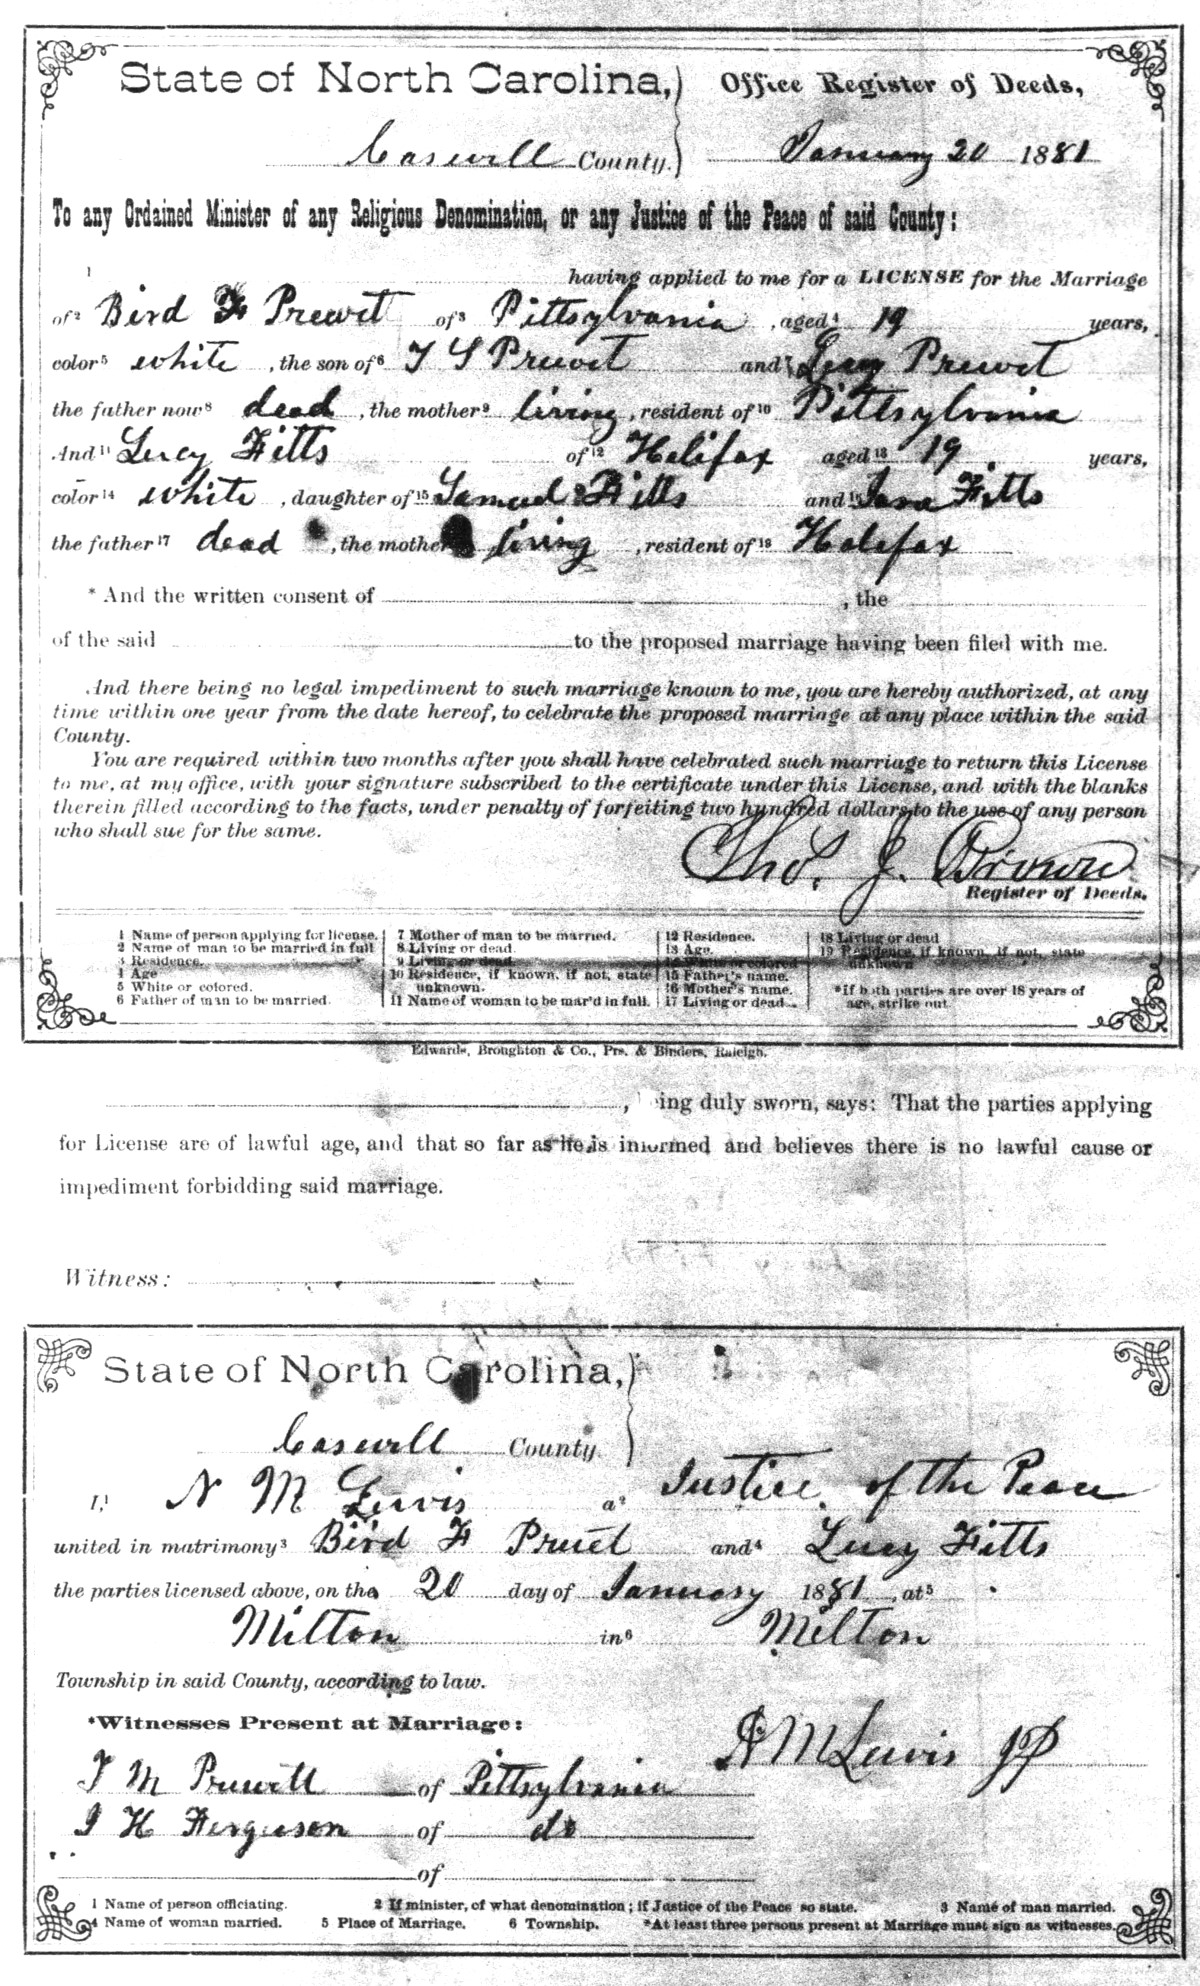 State of North Carolina, Office Register of Deeds,
Caswell County. January 20 1881
To any Ordained Minister of any Religious Denomination, or any Justice of the Peace of said County:
1 having applied to me for a LICENSE for the Marriage
of2 Bird F Prewit of3 Pittsylvania, aged4 19 years,
color5 white, the son of6 T S Pruvet and7 Lucy Prewet
the father now8 dead, the mother9 living, resident of10 Pittsylvania
And11 Lucy Fitts of12 Halifax aged13 19 years,
color14 white, daughter of15 Samuel Fitts and Fitts
the father17 dead, the mother living, resident of18 Halefax
* And the written consent of , the
of the said to the proposed marriage having been filed with me.
And there being no legal impediment to such marriage known to me, you are hereby authorized, at any
time within one year from the date hereof, to celebrate the proposed marriage at any place within the said
County.
You are required within two months after you shall have celebrated such marriage to return this License
to me, at my office, with your signature subscribed to the certificate under this License, and with the blanks
therein filled according to the facts, under penalty of forfeiting two hundred dollars to the use of any person
who shall sue for the same.
Tho. J. Brown
Register of Deeds.
1 Name of person applying for license. 7 Mother of man to be married. 12 Residence. 18 Living or dead
2 Name of man to be married in full 8 Living or dead. 13 Age. 19 Residence, if known, if not, state
3 Residence. 9 Living or dead. 14 White or colored unknown
4 Age 10 Residence, if known, if not, state 15 Father's name.
5 White or colored. unknown. 16 Mother's name. *If both parties are over 18 years of
6 Father of man to be married. 11 Name of woman to be mar'd in full. 17 Living or dead. age, strike out.
Edwards, Broughton & Co., Prs. & Binders, Raleigh.
, ing duly sworn, says: That the parties applying
for License are of lawful age, and that so far as he is informed and believes there is no lawful cause or
impediment forbidding said marriage.
Witness:
State of North Carolina,
Caswell County.
I,1 N M Lewis a2 Justice of the Peace
united in matrimony3 Bird F Pruet and4 Lucy Fitts
the parties licensed above, on the 20 day of January 1881, at5
Milton in6 Milton
Township in said County, according to law.
*Witnesses Present at Marriage:
N M Lewis JP
T M Pruitt of Pittsylvania
J H Ferguson of do
of
1 Name of person officiating. 2 If minister, of what denomination; if Justice of the Peace so state. 3 Name of man married.
4 Name of woman married. 5 Place of Marriage. 6 Township. *At least three persons present at Marriage must sign as witnesses.